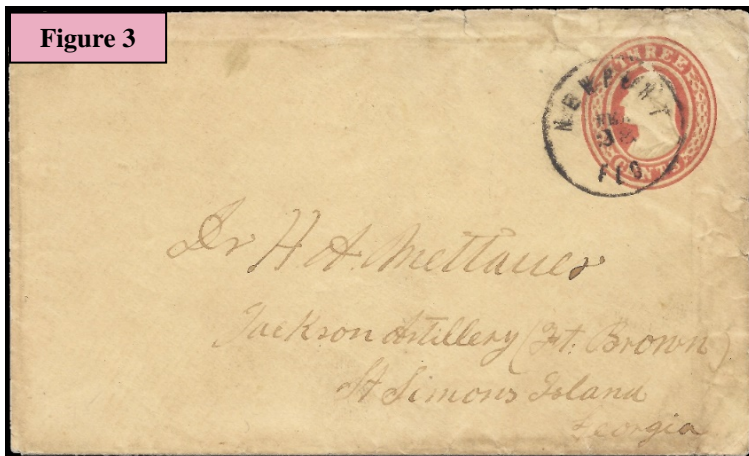 Figure 3
THREE
CENTS
NEWPORT
FLO
Dr H A. Mettauer
Jackson Artillery (Ft. Brown)
St Simons Island
Georgia